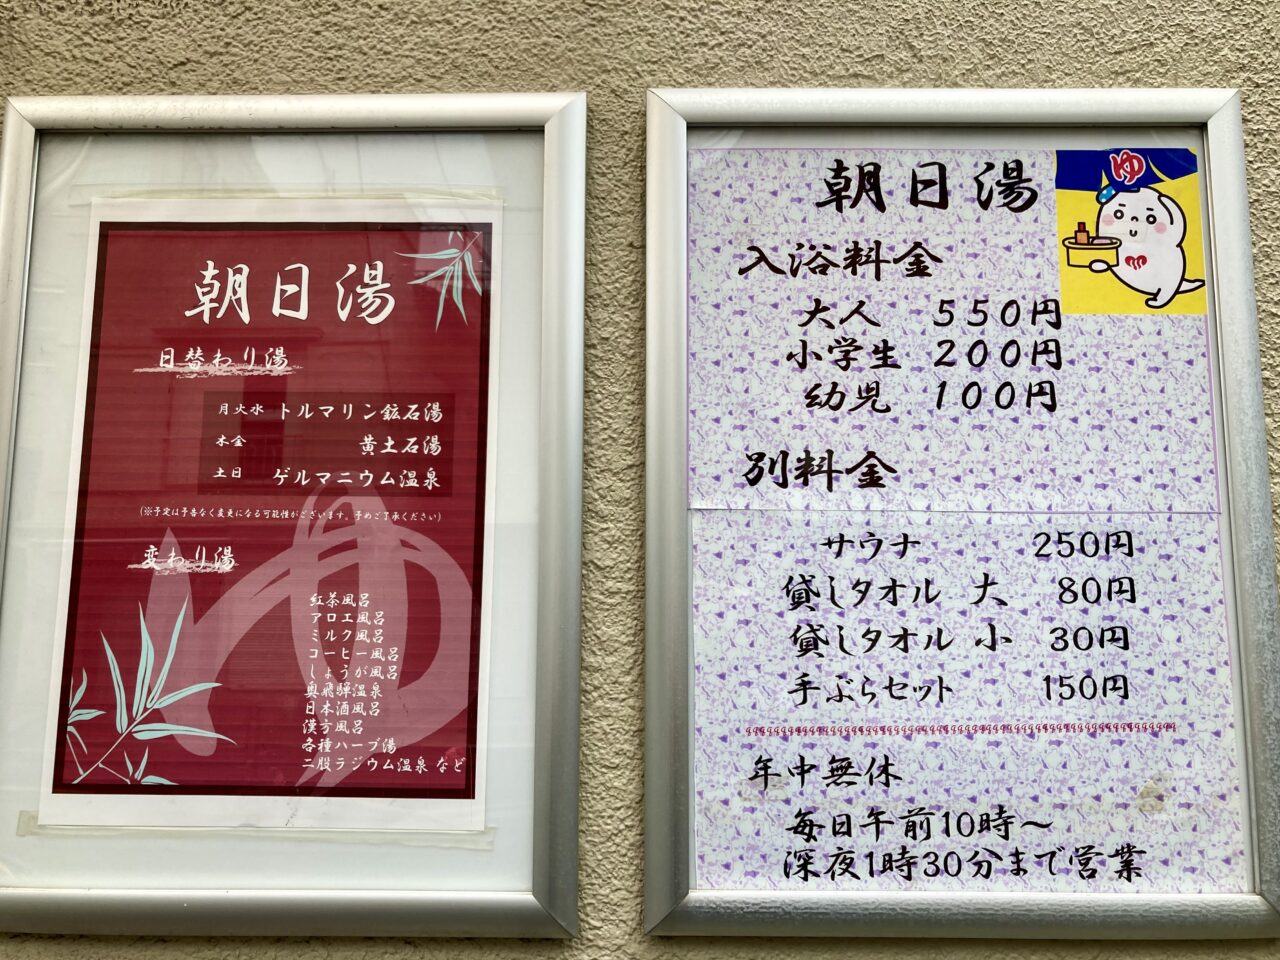 朝日湯
日替わり湯
月火水 トルマリン鉱石湯
木金 黄土石湯
土日 ゲルマニウム温泉
(※予定は予告なく変更になる可能性がございます。予めご了承ください)
変わり湯
紅茶風呂
アロエ風呂
ミルク風呂
コーヒー風呂
しょうが風呂
奥飛騨温泉
日本酒風呂
漢方風呂
各種ハーブ湯
二股ラジウム温泉 など
ゆ
朝日湯
ゆ
入浴料金
大人 550円
小学生 200円
幼児 100円
別料金
サウナ 250円
貸しタオル 大 80円
貸しタオル 小 30円
手ぶらセット 150円
年中無休
毎日午前10時~
深夜1時30分まで営業